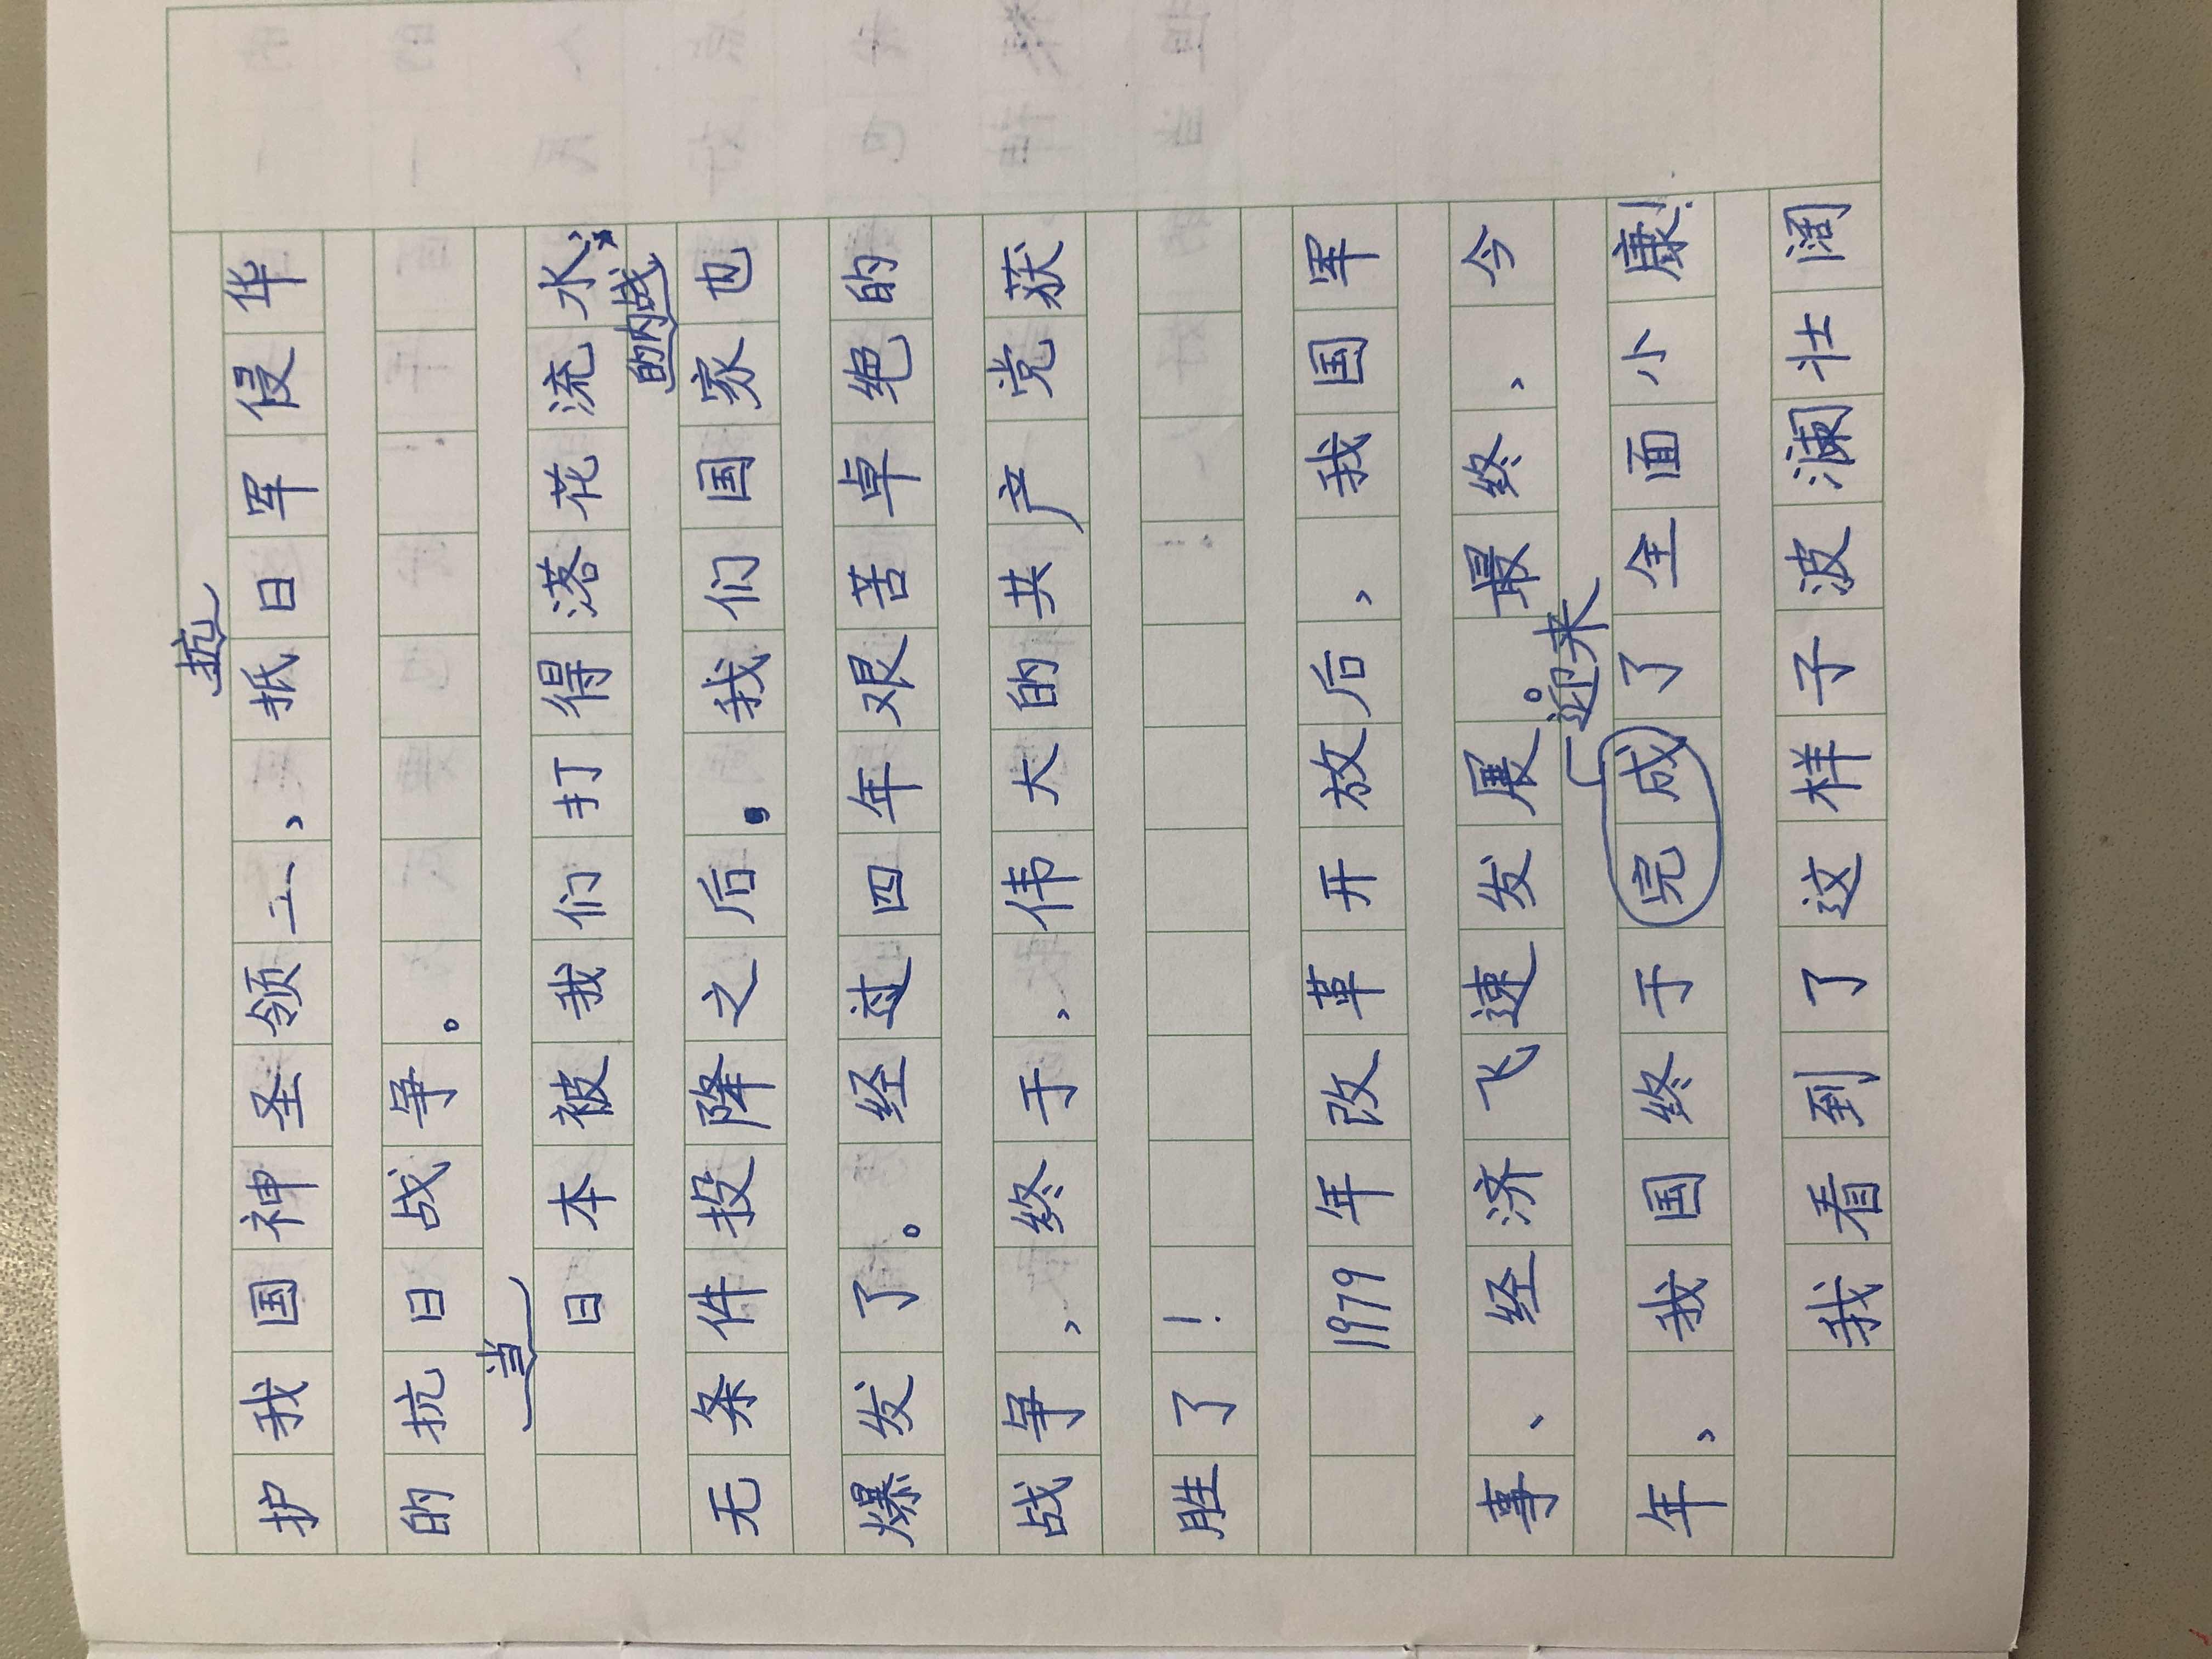 抗
护我国神圣领土,抵日军侵华
的抗日战争。
当
日本被我们打得落花流水,
的内战
无条件投降之后。我们国家也
爆发了。经过四年艰苦卓绝的
战争,终于,伟大的共产党获
胜了!
1979年改革开放后,我国军
事、经济飞速发展。最终,今
迎来
年,我国终于完成了全面小康!
我看到了这样子波澜壮阔